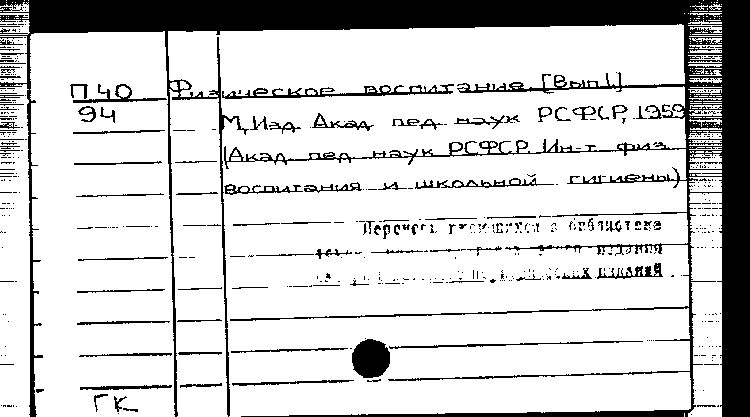 П40 Физическое воспитание. [Вып1.]
94 М, Изд Акад пед наук РСФСР, 1959
(Акад пед наук РСФСР. Ин-т физ
воспитания и школьной гигиены)
Перечень имеющихся в библиотеке
издания
изданий
ГК